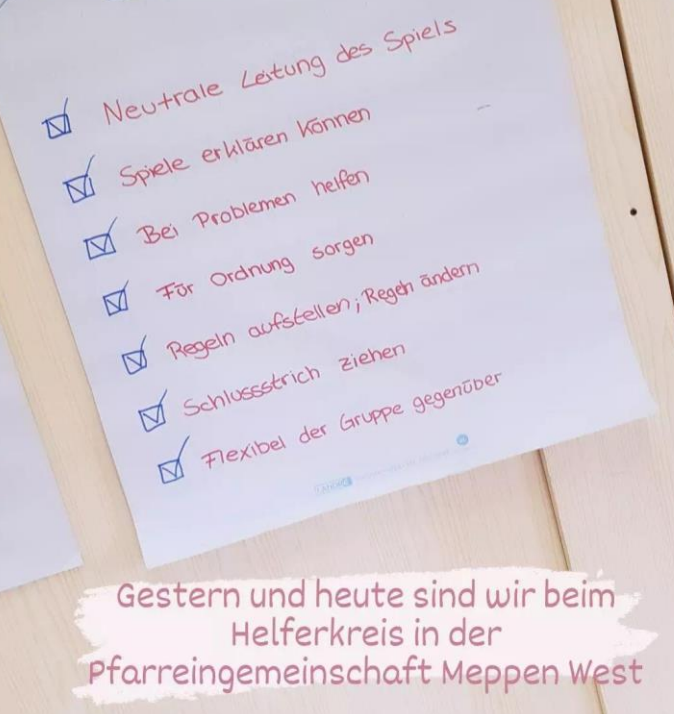 Neutrale Leitung des Spiels
Spiele erklären können
Bei Problemen helfen
Für Ordnung sorgen
Regeln aufstellen; Regeln ändern
Schlussstrich ziehen
Flexibel der Gruppe gegenüber
Gestern und heute sind wir beim
Helferkreis in der
Pfarreingemeinschaft Meppen West